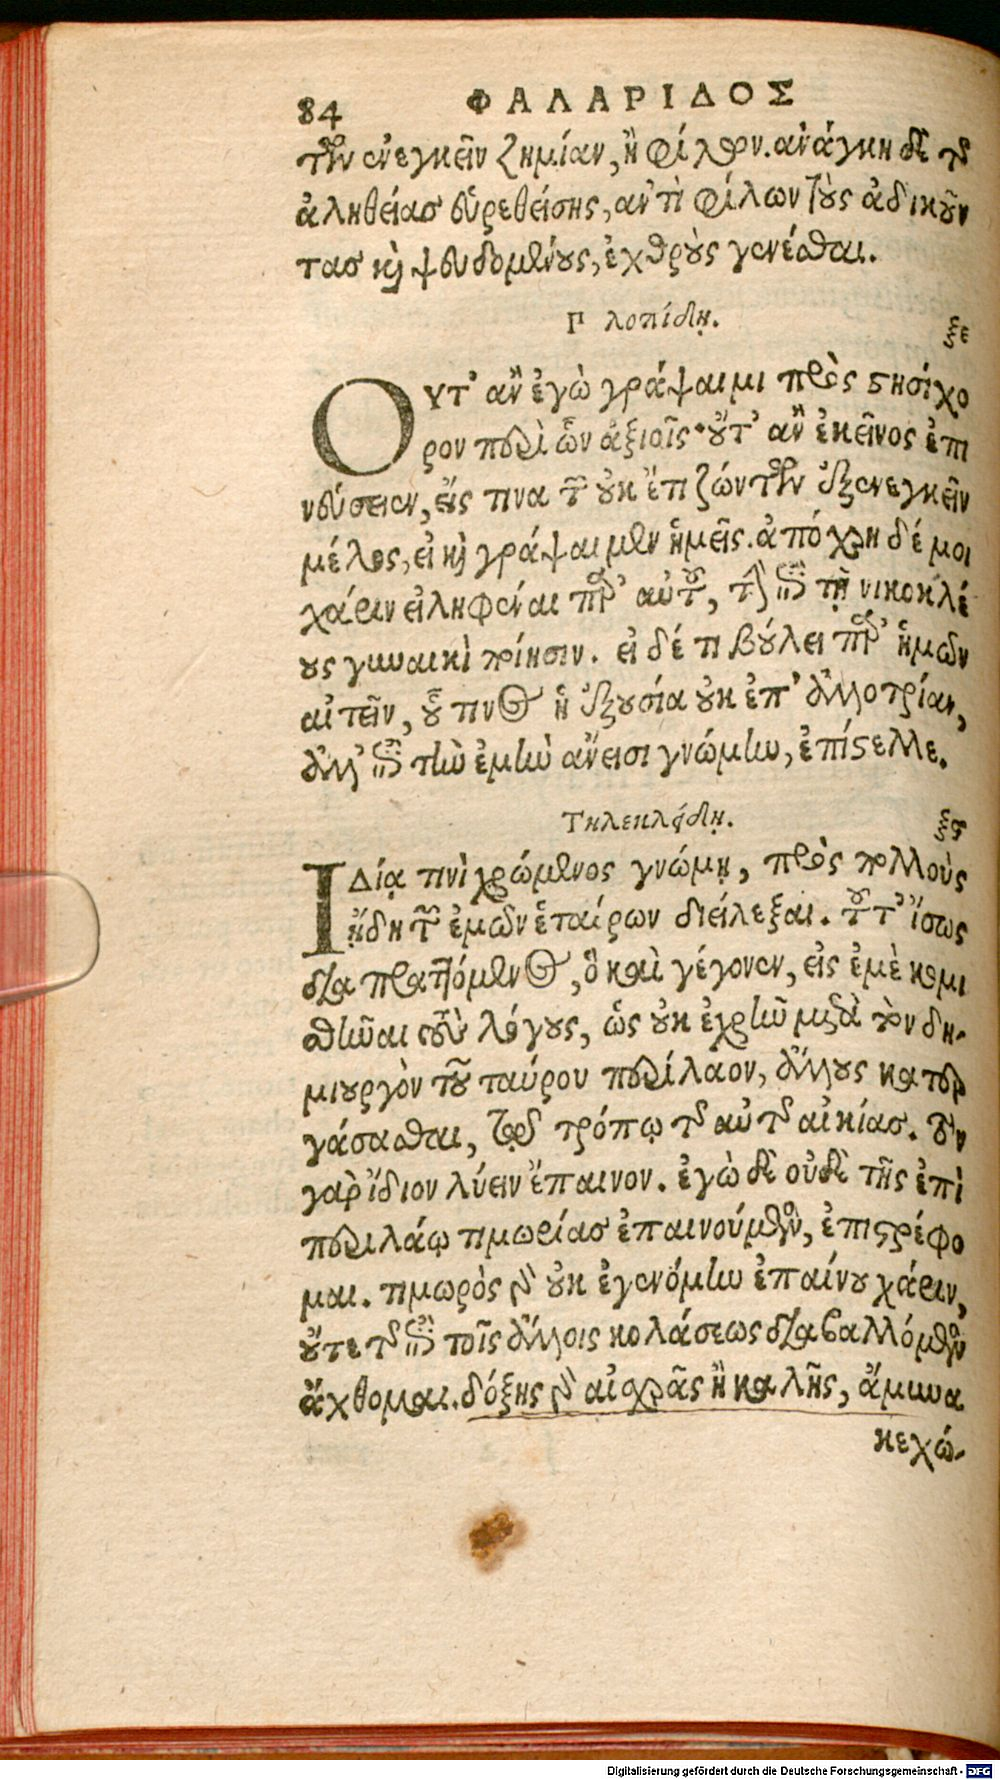 84 ΦΑΛΑΡΙΔΟΣ
των ἐνεγκεῖν ζημίαν, ἢ φίλτρον. ἀνάγκη δὲ τῆς
ἀληθείας εὑρεθείσης, ἀντὶ φίλων τοὺς ἀδικοῦν
τας καὶ ψευδομένους, ἐχθροὺς γενέσθαι.
Γ λοπίδῃ. ξε
ΟΥΤ' ἂν ἐγὼ γράψαιμι πρὸς στησίχο
ρον περὶ ὧν ἀξιοῖς· οὔτ' ἂν ἐκεῖνος ἐπι
νεύσειεν, εἴς τινα τῶν οὐκ ἔτι ζώντων ἐξενεγκεῖν
μέλος, εἰ καὶ γράψαιμεν ἡμεῖς. ἀπόχρη δέ μοι
χάριν εἰληφέναι παρ' αὐτοῦ, τὴν ἐπὶ τῇ νικοκλέ
ους γυναικὶ ποίησιν. εἰ δέ τι βούλει παρ' ἡμῶν
αἰτεῖν, οὗ τινος ἡ ἐξουσία οὐκ ἐπ' ἀλλοτρίαν,
ἀλλ' ἐπὶ τὴν ἐμὴν ἄνεισι γνώμην, ἐπίστελλε.
Τηλεκλείδῃ. ξϛ
ΙΔίᾳ τινὶ χρώμενος γνώμῃ, πρὸς πολλοὺς
ἤδη τῶν ἐμῶν ἑταίρων διείλεξαι. τοῦτ' ἴσως
διαπραττόμενος, ὃ καὶ γέγονεν, εἰς ἐμὲ κομι
σθῆναι τοὺς λόγους, ὡς οὐκ ἐχρῆν μετὰ τὸν δη-
μιουργὸν τοῦ ταύρου περίλαον, ἄλλους κατερ
γάσασθαι, τῷδε τρόπῳ τῆς αὐτῆς αἰκίας. οὖν
γὰρ ἴδιον λύειν ἔπαινον. ἐγὼ δὲ οὐδὲ τῆς ἐπὶ
περιλάῳ τιμωρίας ἐπαινούμενον, ἐπιστρέφο
μαι. τιμωρὸς γὰρ οὐκ ἐγενόμην ἐπαίνου χάριν,
οὔτε τῆς ἐπὶ τοῖς ἄλλοις κολάσεως διαβαλλόμενον
ἄχθομαι. δόξης γὰρ αἰσχρᾶς ἢ καλῆς, ἄμυνα
κεχώ-
Digitalisierung gefördert durch die Deutsche Forschungsgemeinschaft - DFG